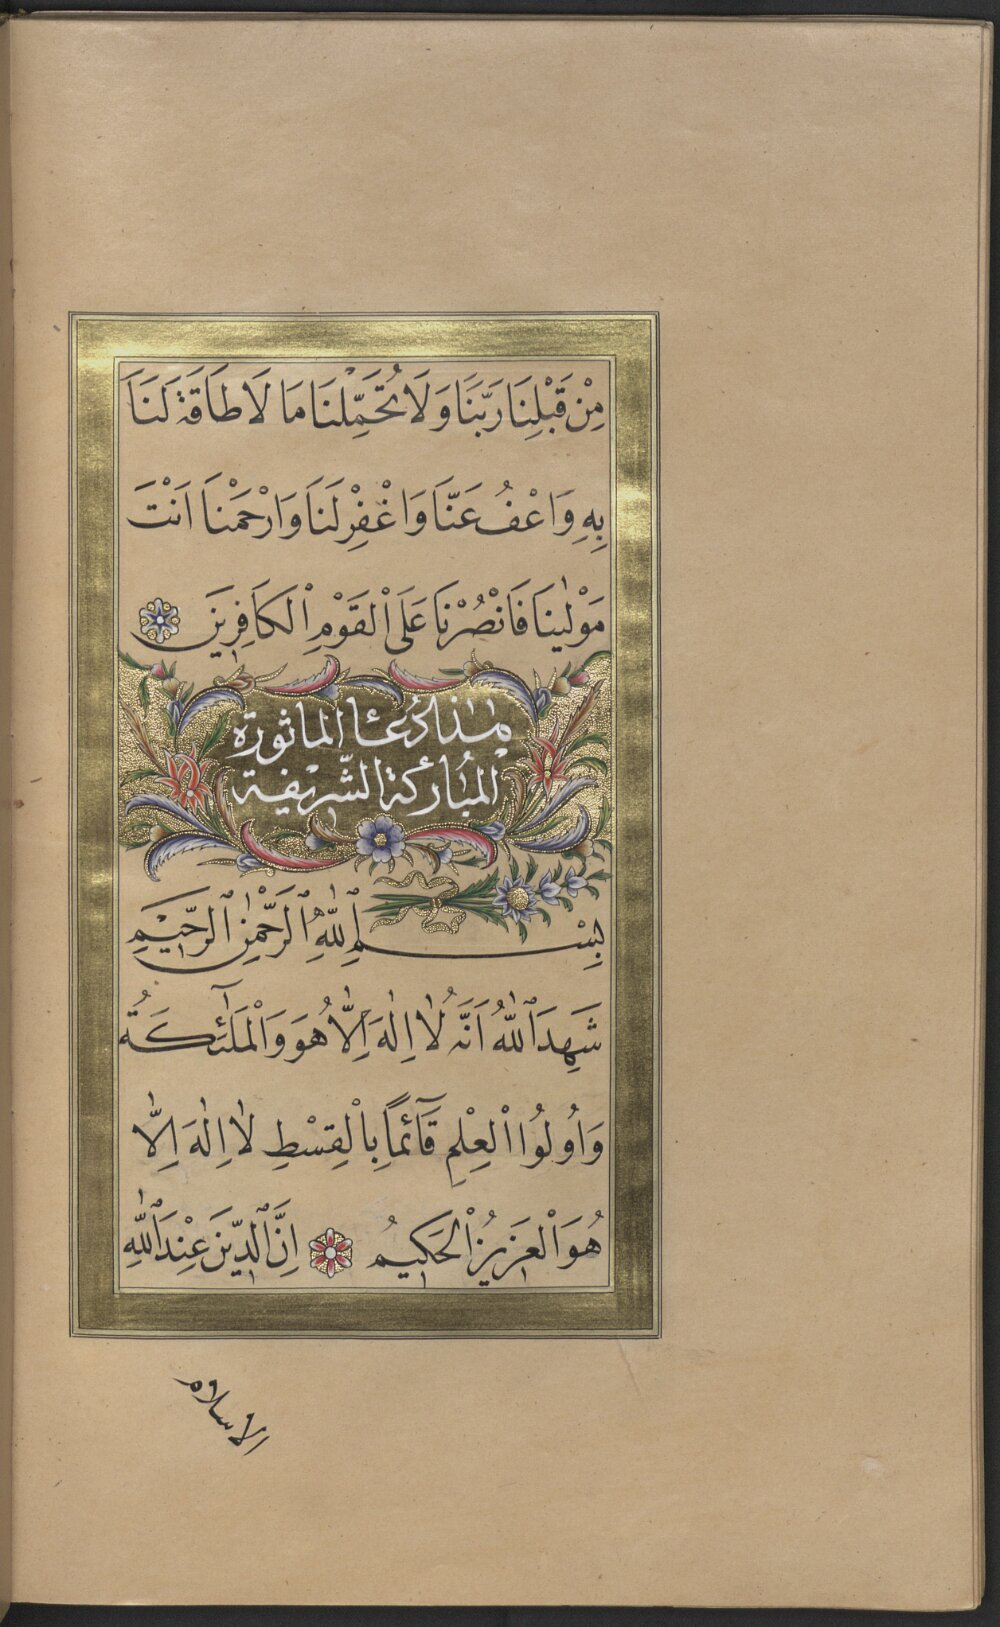 مِنْ قَبْلِنَا رَبَّنَا وَلَا تُحَمِّلْنَا مَا لَا طَاقَةَ لَنَا
بِهِ وَاعْفُ عَنَّا وَاغْفِرْ لَنَا وَارْحَمْنَا اَنْتَ
مَوْلٰينَا فَانْصُرْنَا عَلَى الْقَوْمِ الْكَافِرِينَ
هٰذا دُعَاء الماثورة
المباركة الشّريفة
بِسْمِ اللّٰهِ الرَّحْمٰنِ الرَّحِيمِ
شَهِدَ اللّٰهُ اَنَّهُ لَا اِلٰهَ اِلَّا هُوَ وَالْمَلٰٓئِكَةُ
وَاُولُوا الْعِلْمِ قَٓائِمًا بِالْقِسْطِ لَا اِلٰهَ اِلَّا
هُوَ الْعَزِيزُ الْحَكِيمُ اِنَّ الدِّينَ عِنْدَ اللّٰهِ
الاسلام